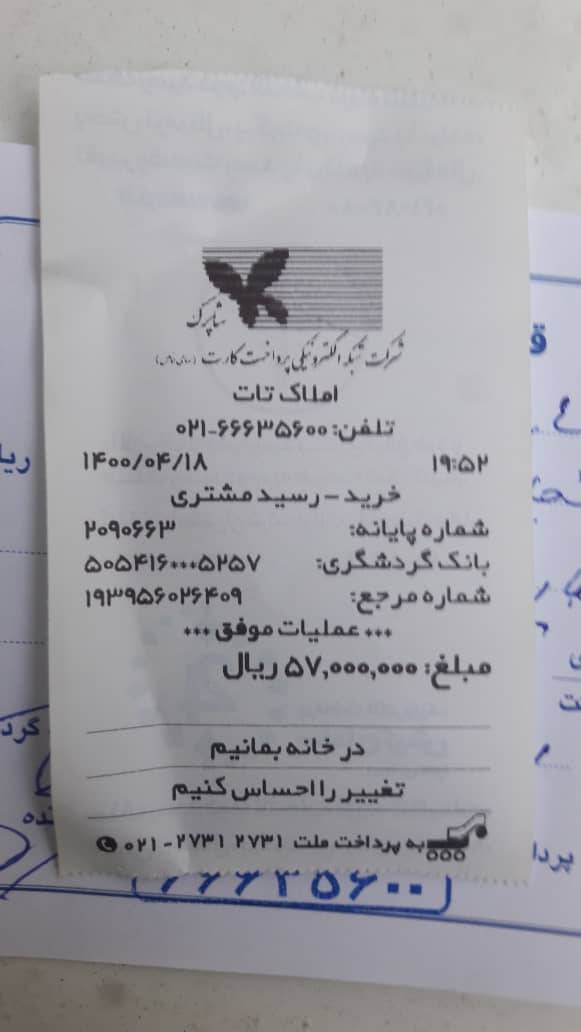 شاپرک
شرکت شبکه الکترونیکی پرداخت کارت (سهامی خاص)
املاک تات
تلفن: ۰۲۱-۶۶۶۳۵۶۰۰
۱۴۰۰/۰۴/۱۸ ۱۹:۵۲
خرید - رسید مشتری
شماره پایانه: ۲۰۹۰۶۶۳
بانک گردشگری: ۵۰۵۴۱۶***۵۲۵۷
شماره مرجع: ۱۹۳۹۵۶۰۲۶۴۰۹
*** عملیات موفق ***
مبلغ: ۵۷,۰۰۰,۰۰۰ ریال
در خانه بمانیم
تغییر را احساس کنیم
به پرداخت ملت ۲۷۳۱ ۲۷۳۱-۰۲۱
۶۶۶۳۵۶۰۰
ریا
گرد
نده